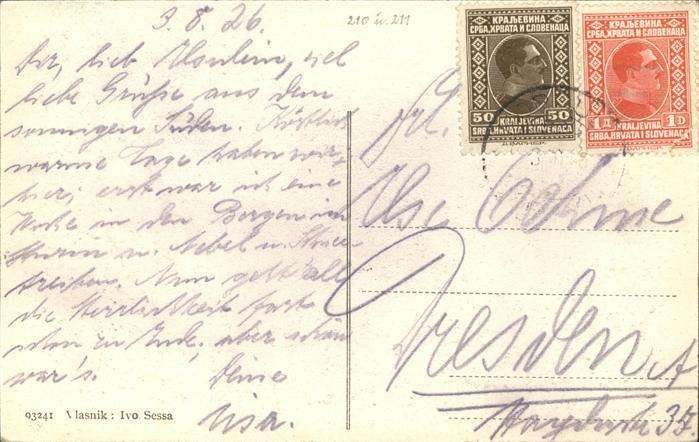 3.8.26.
210 u. 211
Dir, lieb Ilselein, viel
liebe Grüße aus dem
sonnigen Süden. Köstlich
warme Tage haben wir
hier; erst war ich eine
Woche in den Bergen im
Sturm u. Nebel u.
treiben. Nun geht all
die Herrlichkeit fast
schon zu Ende, aber schön
war's. Deine
Lisa.
93241 Vlasnik : Ivo Sessa
КРАЉЕВИНА
СРБА, ХРВАТА И СЛОВЕНАЦА
50 50
KRALJEVINA
SRBA, HRVATA I SLOVENACA
КРАЉЕВИНА
СРБА, ХРВАТА И СЛОВЕНАЦА
1 Д 1 D
KRALJEVINA
SRBA, HRVATA I SLOVENACA
Frl.
Ilse Böhme
Dresden A
Haydnstr 35.